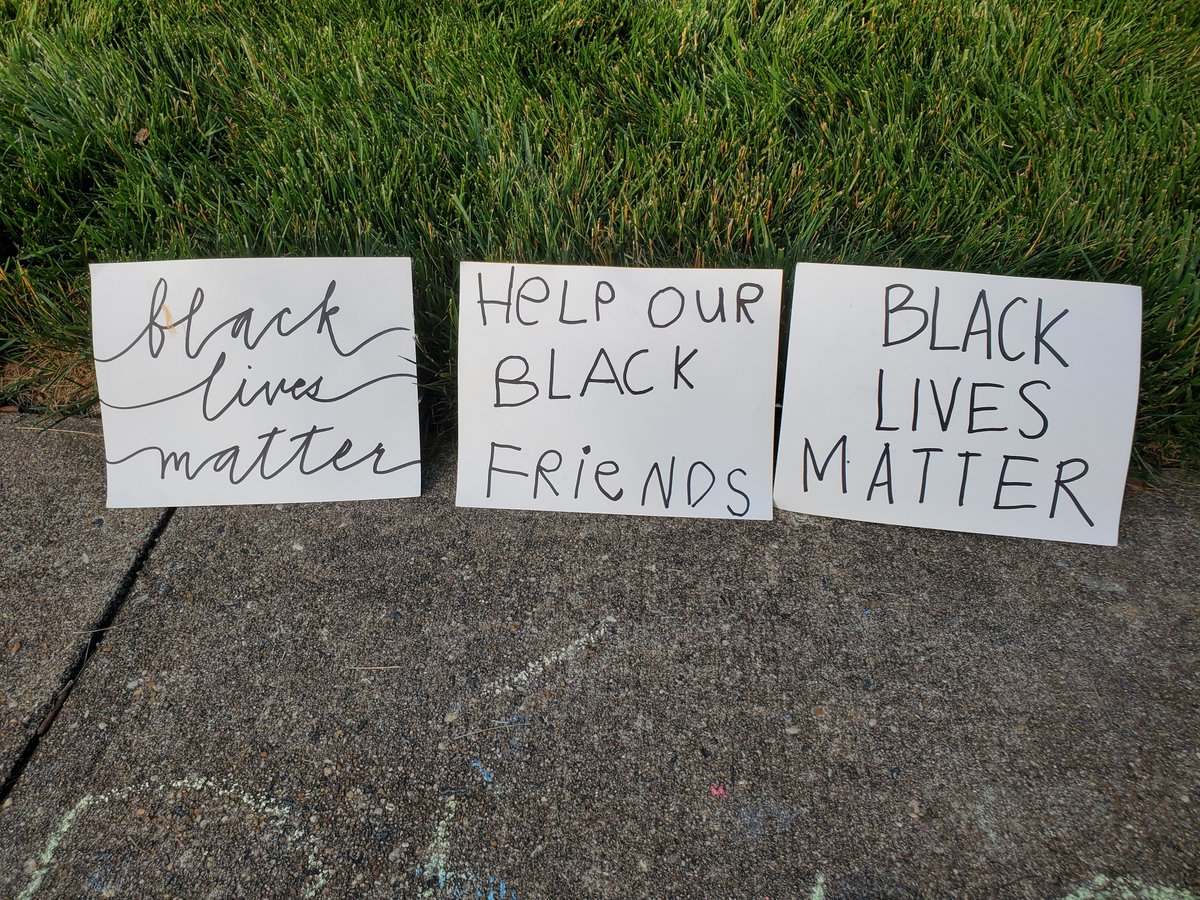 black
lives
matter
HeLP OUR
BLACK
FRieNDS
BLACK
LIVES
MATTER